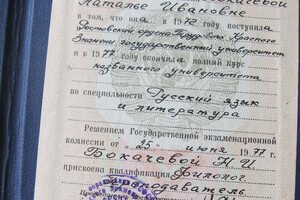 Наталье Ивановне
в том, что она в 1972 году поступила
Ростовский ордена Трудового Красного
Знамени государственный университет
и в 1977 окончила полный курс
названного университета
по специальности Русский язык
и литература
Решением Государственной экзаменационной
комиссии от 25 июня 1977 г.
Бокачевой Н.И.
присвоена квалификация Филолог